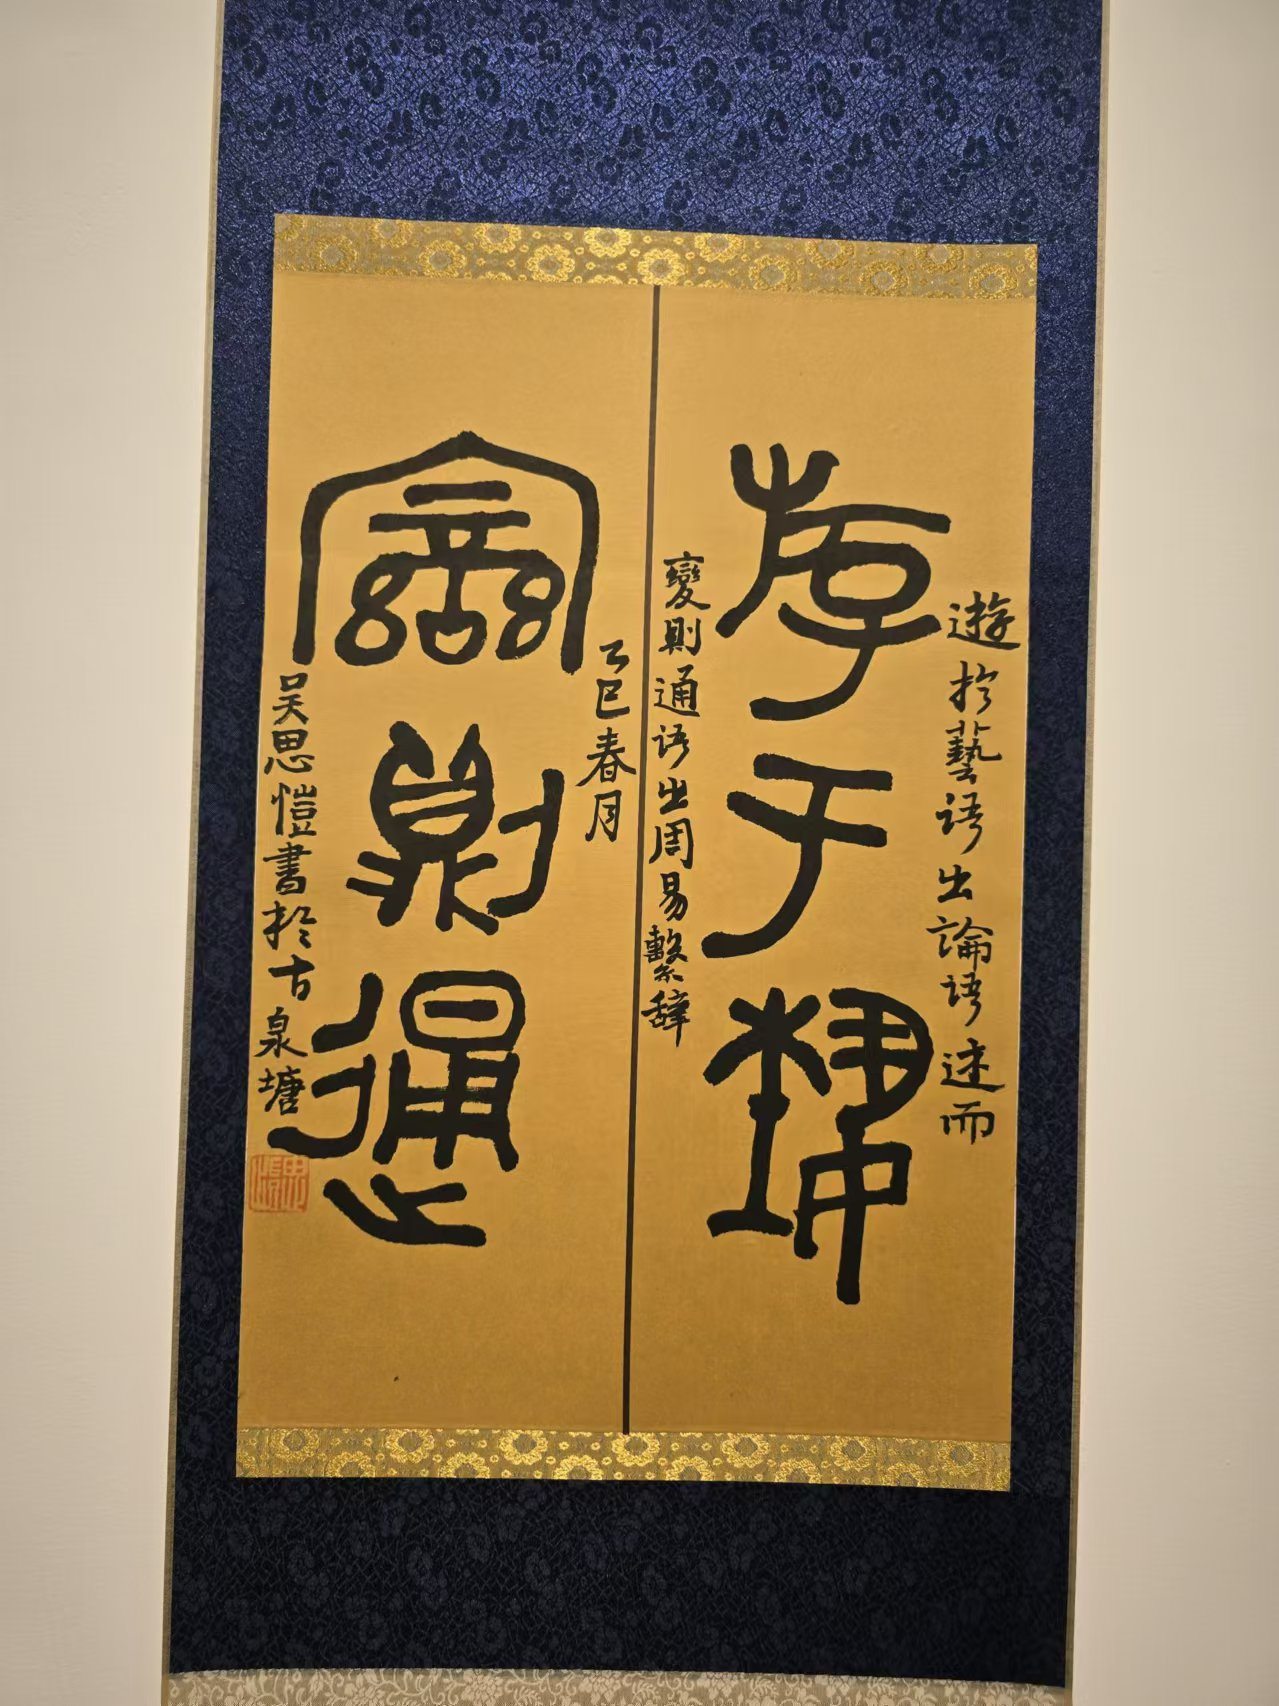 遊於藝語出論語述而
斿于埶
變則通語出周易繫辭
乙巳春月
變則通
吳思愷書於古泉塘